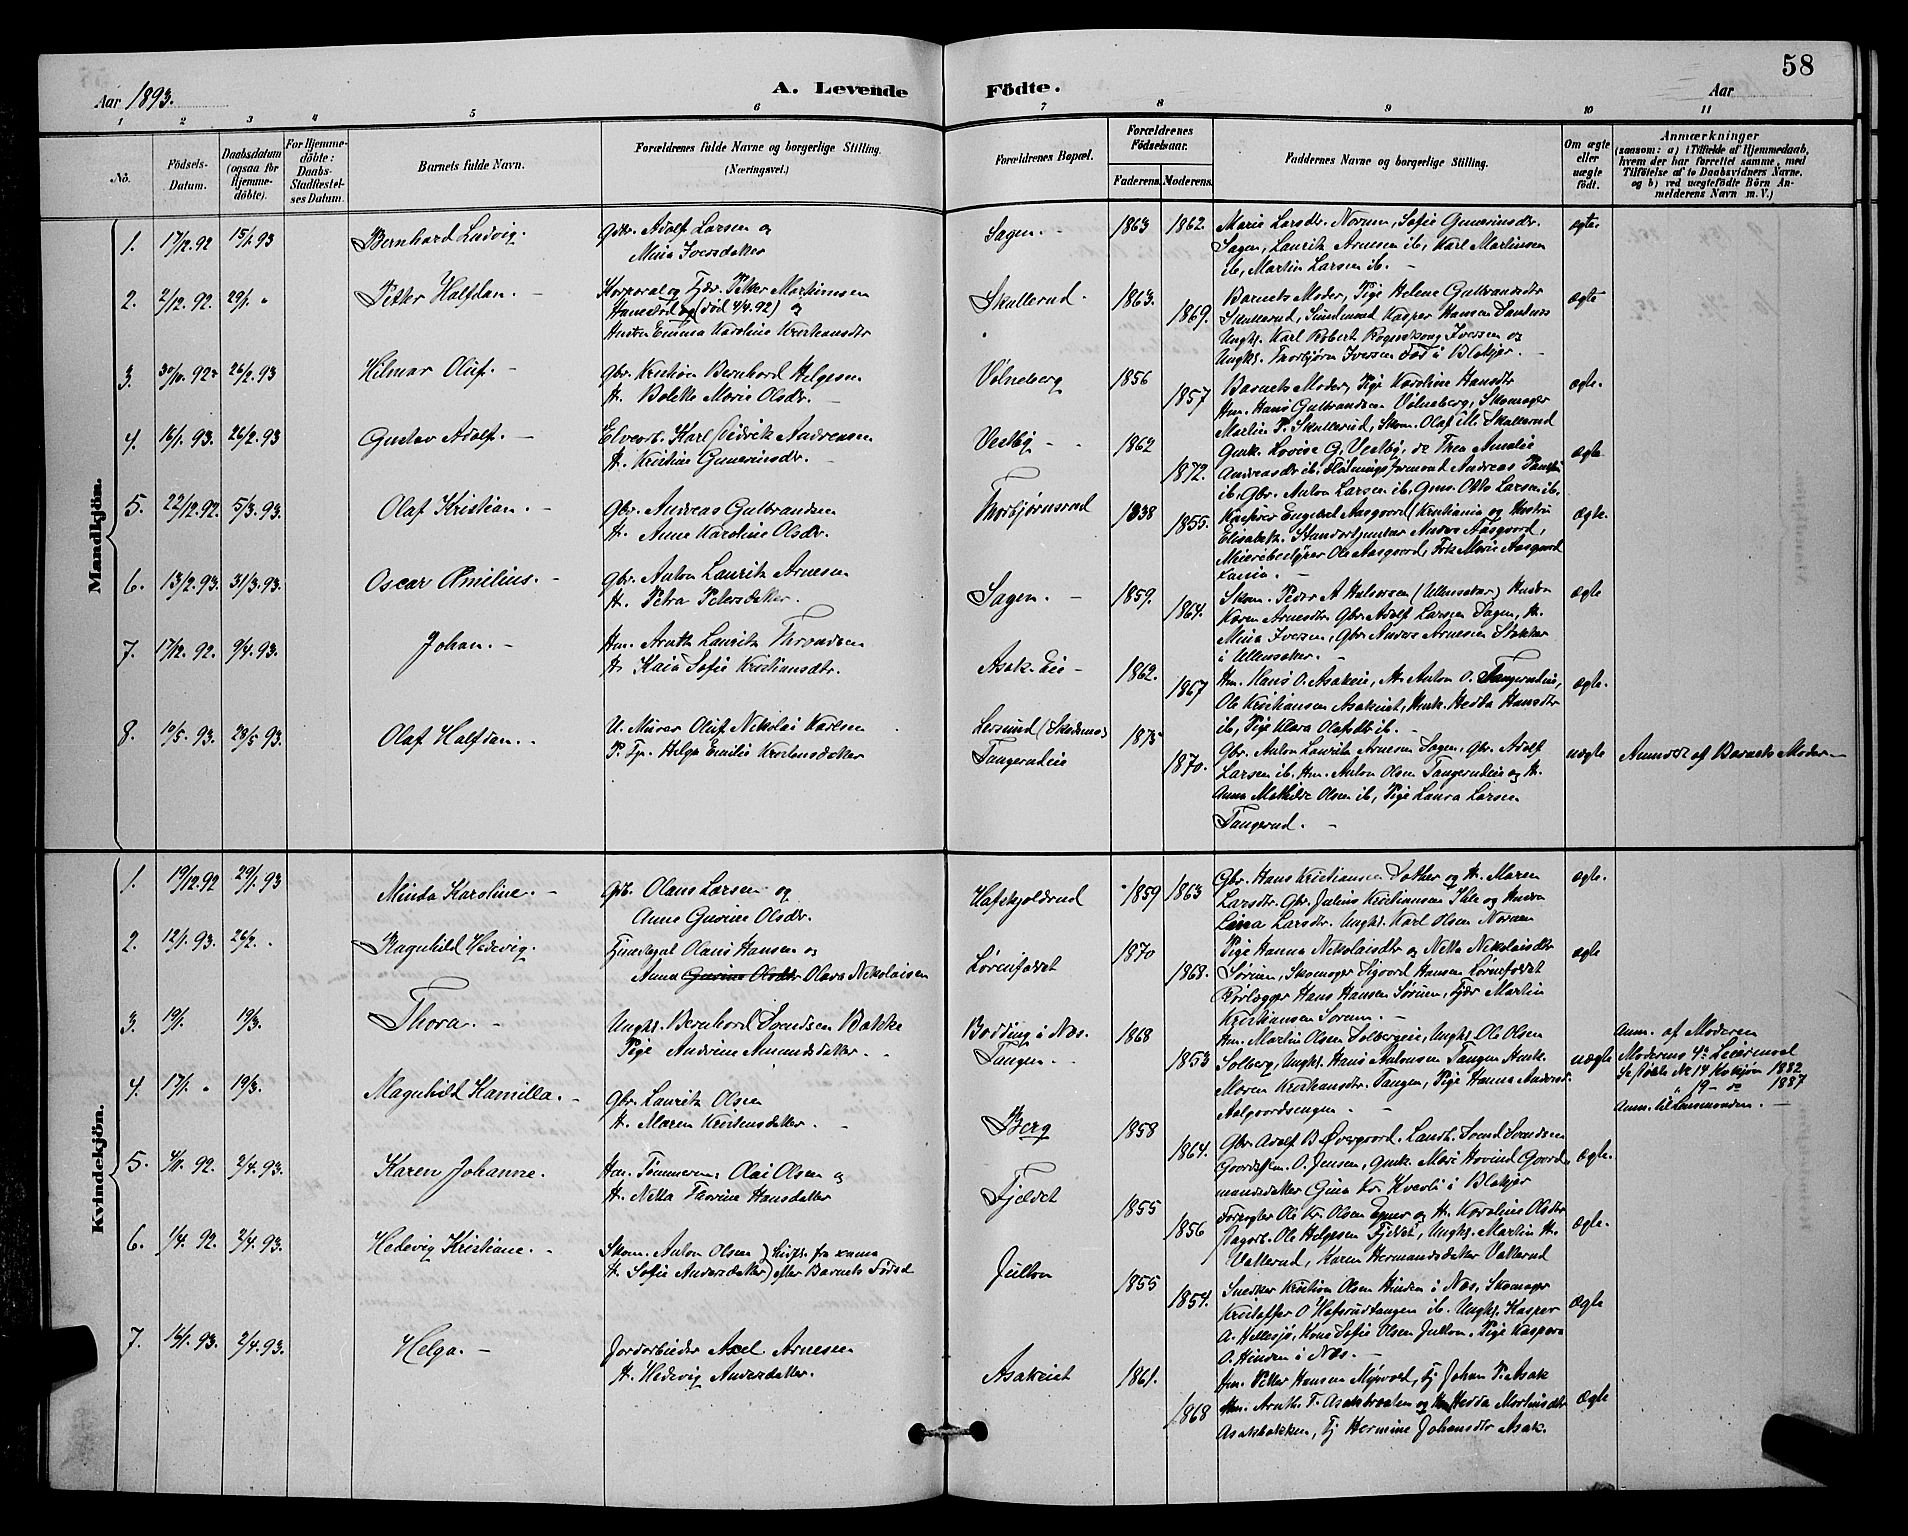 58
Aar 1893.
A. Levende Födte.
Aar
1 2 3 4 5 6 7 8 9 10 11
No.
Födsels-Datum.
Daabsdatum (ogsaa for Hjemme-döbte).
For Hjemme-döbte: Daabs-Stadfæstel-ses Datum.
Barnets fulde Navn.
Forældrenes fulde Navne og borgerlige Stilling. (Næringsvei.)
Forældrenes Bopæl.
Forældrenes Födselsaar.
Faderens. Moderens.
Faddernes Navne og borgerlige Stilling.
Om ægte eller uægte födt.
Anmærkninger
(saasom: a) i Tilfælde af Hjemmedaab, hvem der har forrettet samme, med Tilföielse af to Daabsvidners Navne, og b) ved uægtefödte Börn An-melderens Navn m. V.)
Mandkjön.
1. 17/12.92 15/1.93 Bernhard Ludvig. Gbr. Adolf Larsen og
Mina Iversdatter
Sagen. 1863 1862. Marie Larsdr. Norum, Sofie Guneriusdr.
Sagen, Lauritz Arnesen ib, Karl Martinsen
ib, Martin Larsen ib.
ægte
2. 2/12.92. 29/1. " Petter Halfdan. Korporal og Tjær. Petter Martinusen
(död 4/4.92) og
Hustru Emma Karoline Kristiansdtr
Skullerud. 1863. 1869. Barnets Moder, Pige Helene Gulbrandsdtr
Skullerud, Kasper Hansen
Ungk. Karl Robert Iversen og
Ungk. Thorbjørn Iversen i Blakjer.
ægte
3. 30/10.92 26/2.93 Hilmar Oluf. Gbr. Kristian Bernhard Helgesen
H. Bolette Marie Olsdr.
Volneberg 1856 1857 Barnets Moder, Pige Karoline Hansdtr
Hm. Hans Gulbrandsen Volneberg, Skomager
Martin P. Skullerud, Skom. Olaf M. Skullerud
ægte.
4. 16/1.93. 26/2.93 Gustav Adolf. Elvearb. Karl Fredrik Andreasen
H. Kristine Guneriusdr.
Vestby 1862 1872. Gmk. Lovise G. Vestby, Thea Amalie
Andreasdr ib. Flödningsformand Andreas
ib, Gbr. Anton Larsen ib, Gms. Otto Larsen ib.
ægte
5. 22/12.92. 5/3.93. Olaf Kristian. Gbr. Andreas Gulbrandsen
H. Anne Karoline Olsdr.
Thorbjørnsrud 1838 1855. Engebret Aasgaard (Kristiania og Hustru
Elisabeth. Anders Aasgaard,
Meieribestyrer Ole Aasgaard, Frk. Marie Aasgaard
ægte.
6. 13/2.93. 31/3.93. Oscar Emilius. Gbr. Anton Lauritz Arnesen
H. Petra Petersdatter.
Sagen. 1859. 1864. Skom. Peder A Halvorsen (Ullensaker) Hustru
Karen Arnesdtr Gbr. Adolf Larsen Sagen, H.
Mina Iversen, Gbr. Anders Arnesen
i Ullensaker.
ægte
7. 17/12.92. 9/4.93. Johan. Hm. Arnth Lauritz Throndsen
H. Kaia Sofie Kristiansdtr.
Asak-Eie 1862. 1867 Hm. Hans O. Asakeie, H. Anton O. Tangerudeie,
Ole Kristiansen Asakeiet, Gmk. Hedda Hansdtr
ib, Pige Klara Olafsdtr ib.
ægte.
8. 10/5.93. 28/5.93. Olaf Halfdan. U. Murer Oluf Nikolai Karlsen
P. Tj. Helga Emilie Kristensdatter
Lersund (Skedsmo) Tangerudeie 1875 1870. Gbr. Anton Lauritz Arnesen Sagen, Gbr. Adolf
Larsen ib. Hm. Anton Olsen Tangerudeie og H.
Anna Mathilde Olsen ib, Pige Laura Larsen
Tangerud.
uægte Anmeldt af Barnets Moder
Kvindekjön.
1. 19/12.92 29/1.93 Minda Karoline. Gbr. Olaus Larsen og
Anne Gurine Olsdr.
Hafskjoldrud 1859 1863 Gbr. Hans Kristiansen og H. Maren
Larsdtr. Gbr. Julius Kristiansen Ihle og Hustru
Lina Larsdtr. Ungk. Karl Olsen Norum
ægte.
2. 12/1.93. 26/2. " Ragnhild Hedevig. Olaus Hansen og
Anna Gurine Olsdtr Olava Nikolaisen
Lörenfaldet 1870 1868. Pige Hanna Nikolaisdtr og Netta Nikolaisdtr
Sörum, Skomager Sigvard Hansen Lörenfaldet
Rørlægger Hans Hansen Sörum, Tjær Martin
Kristiansen Sörum.
ægte
3. 19/1. 19/3. Thora. Ungk. Bernhard Svendsen Bakke
Pige Andrine Amundsdatter.
Bodding i Næs. Tangen 1868 1853 Hm. Martin Olsen Solbergeie, Ungk. Ole Olsen
Solberg, Ungk. Hans Antonsen Tangen Gmk.
Maren Kristiansdtr. Tangen, Pige Hanna
Aalgaardsengen.
uægte Anm. af Moderen
Moderens 4de Leiermaal
Se No 14 Kvkjön 1882
" 19 - do 1887
Anm. til Lensmanden.
4. 17/1. " 19/3. Magnhild Kamilla. Gbr. Lauritz Olsen
H. Maren Kristensdatter.
Berg 1858 1864. Gbr. Adolf B. Övergaard, Landh. Svend Svendsen
O. Jensen, Gmk. Mari Hovind Gaard
mandsdatter Gina Kr. Kverli i Blakjer
ægte.
5. 4/11.92. 2/4.93. Karen Johanne. Hm. Tömmerm. Olai Olsen og
H. Netta Thorine Hansdatter
Fjeldet 1855 1856 Forvalter Ole Kr. Olsen og H. Karoline Olsdtr
Dagarb. Ole Helgesen Fjeldet, Ungk. Martin H.
Vallerud, Karen Hermansdatter Vallerud
ægte.
6. 1/4.92. 2/4.93. Hedevig Kristiane. Skom. Anton Olsen
H. Sofie Andersdatter) efter Barnets Födsel
Julton 1855 1854. Snedker Kristian Olsen Hinden i Næs, Skomager
Kristoffer O Hafsrudtangen ib. Ungk. Kasper
A. Hellesjö, Kone Sofie Olsen Julton. Pige Kaspara
O. Hinden i Næs.
ægte
7. 16/1.93. 2/4.93. Helga. Jordarbeider Axel Arnesen
H. Hedevig Andersdatter.
Asakeiet 1861. 1868 Hm. Petter Hansen Myrvold, Tj Johan P. Asak
Hm. Arnth T. Asakbraaten og Hedda Martinsdtr
Asakbakken, Tj Hermine Johansdtr Asak.
ægte